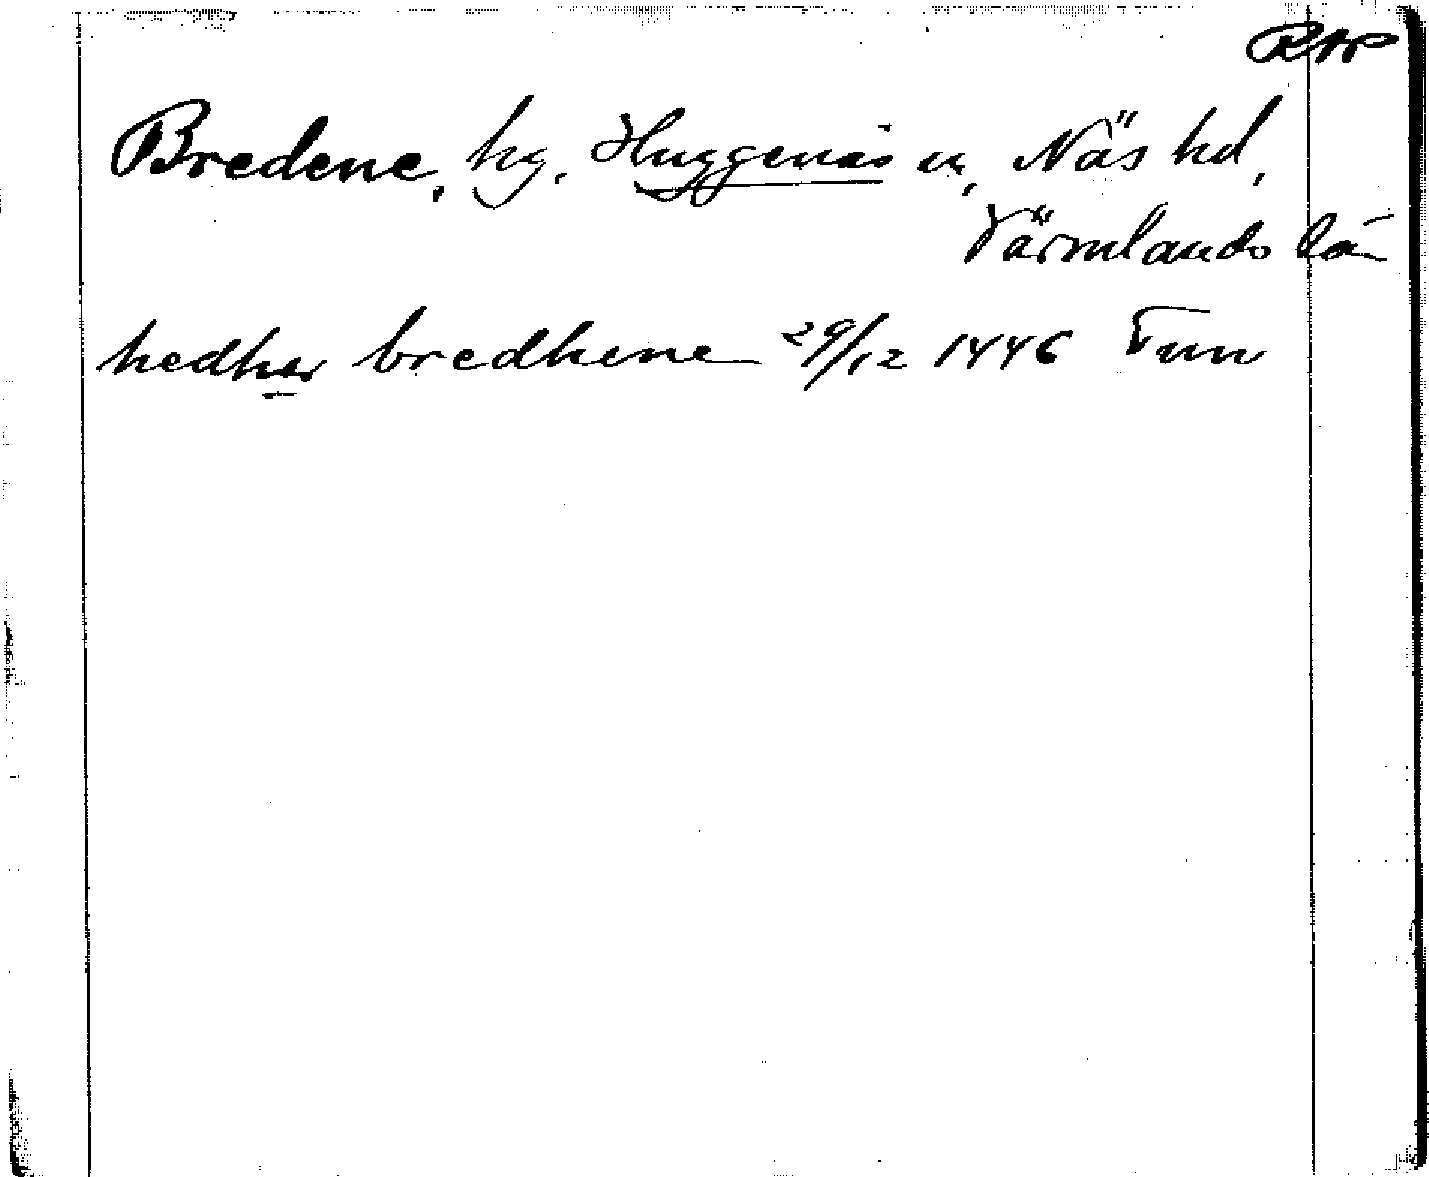 RAP
Bredene, hg, Huggenäs sn, Näs hd,
Värmlands län
hedher bredhene 29/12 1446 Tun